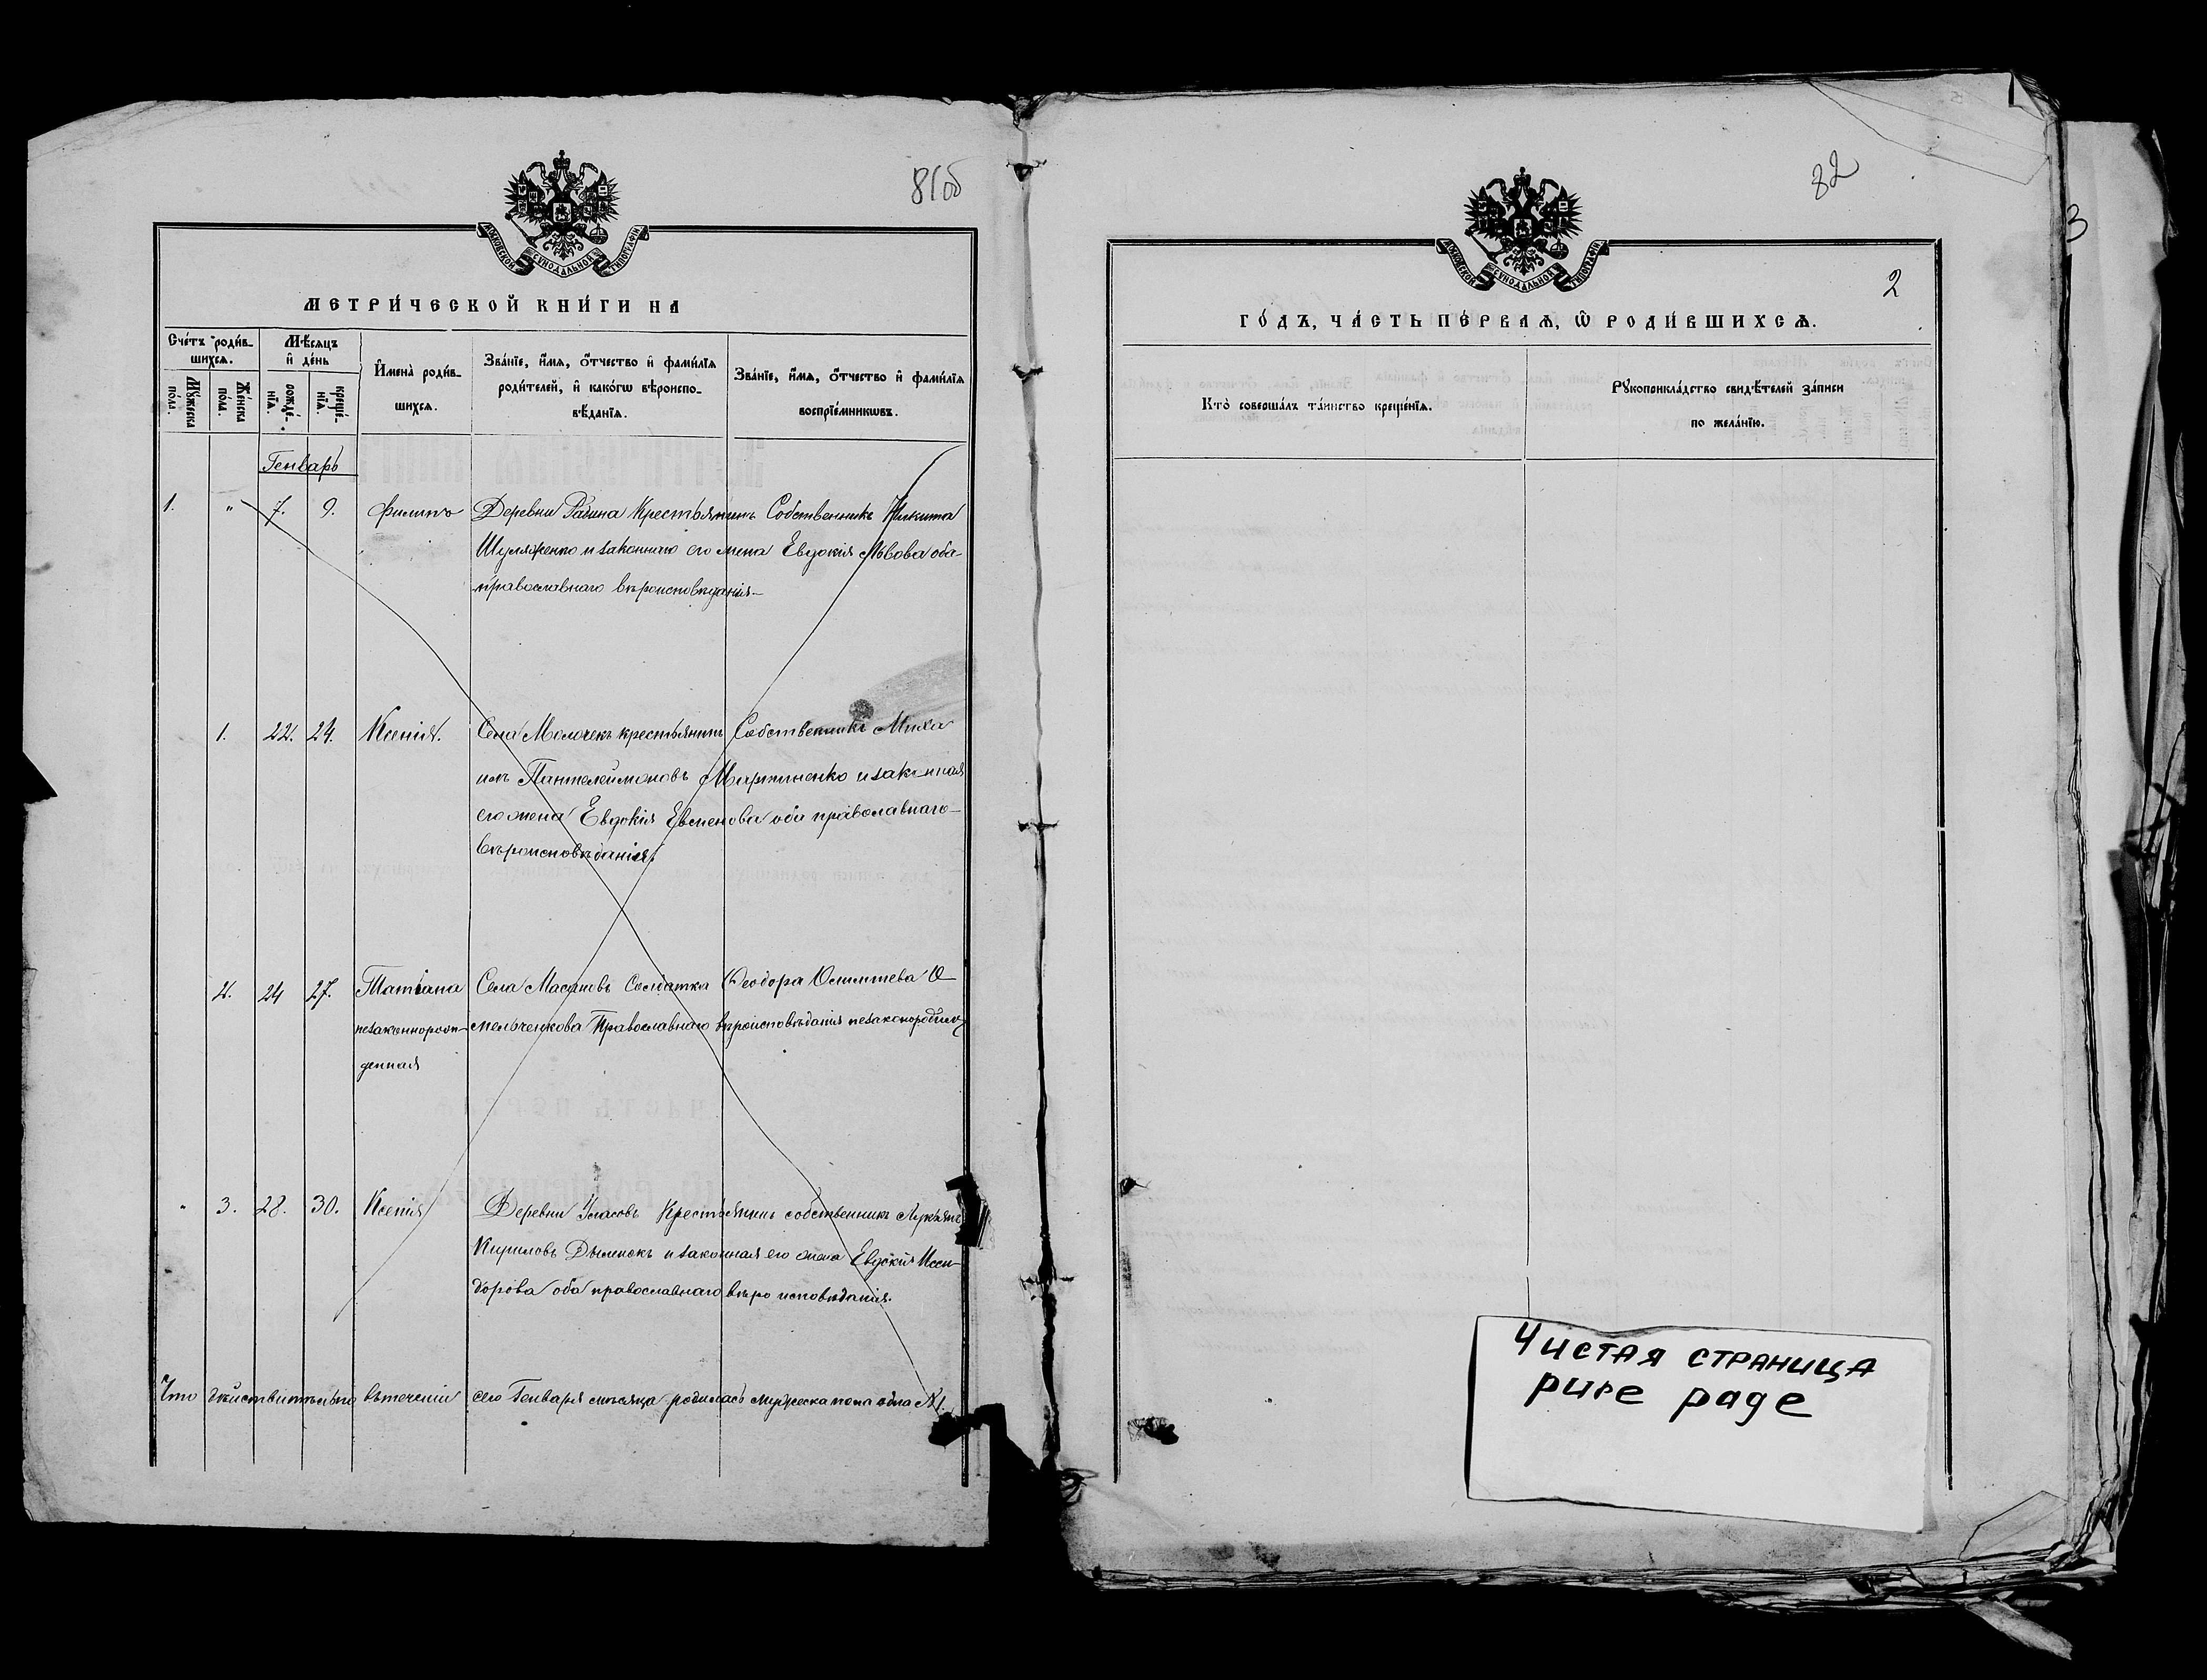 81об
МОСКОВСКОЙ СѴНОДАЛЬНОЙ ТИПОГРАФІИ
МЕТРИ́ЧЕСКОЙ КНИ́ГИ НА
Сче́тъ роди́вшихсѧ.
Мѣ́сѧцъ и҆ де́нь
И҆мена̀ роди́вшихсѧ.
Зва́нїе, и҆́мѧ, ѻ҆́тчество и҆ фами́лїѧ родителей, и҆ како́гѡ вѣроисповѣ́данїѧ.
Зва́нїе, и҆́мѧ, ѻ҆́тчество и҆ фами́лїѧ воспрїе́мникѡвъ.
Мꙋ́жеска по́ла.
Же́нска по́ла.
рожде́нїѧ.
креще́нїѧ.
Генварь
1. " 7. 9. Филипъ Деревни Крестьянинъ Собственникъ Никита
и законная его жена Евдокія Львова оба
православнаго вѣроисповѣданія
1. 22. 24. Ксенія. Села Молочекъ крестьянинъ Собственникъ Миха
илъ Пантелеймоновъ Мартиненко и законная
его жена Евдокія Евменова оба православнаго
вѣроисповѣданія.
2. 24 27. Татіана Села Солдатка Ѳеодора О
незаконнорож мельченкова Православнаго вѣроисповѣданія
денная
" 3. 28. 30. Ксенія Деревни Крестьянинъ собственникъ Лукьянъ
Кириловъ и законная его жена Евдокія Иси
дорова оба православнаго вѣро исповѣданія.
Что дѣйствительно втеченіи сего Генваря мѣсяца родилась мужеска пола одна №1.
82
МОСКОВСКОЙ СѴНОДАЛЬНОЙ ТИПОГРАФІИ
2
ГО́ДЪ, ЧА́СТЬ ПЕ́РВАѦ, Ѡ҆ РОДИ́ВШИХСѦ.
Кто̀ соверша́лъ та́инство креще́нїѧ.
Рꙋкоприкла́дство свидѣ́телей за́писи
по жела́нїю.
Чистая страница
pure page
3